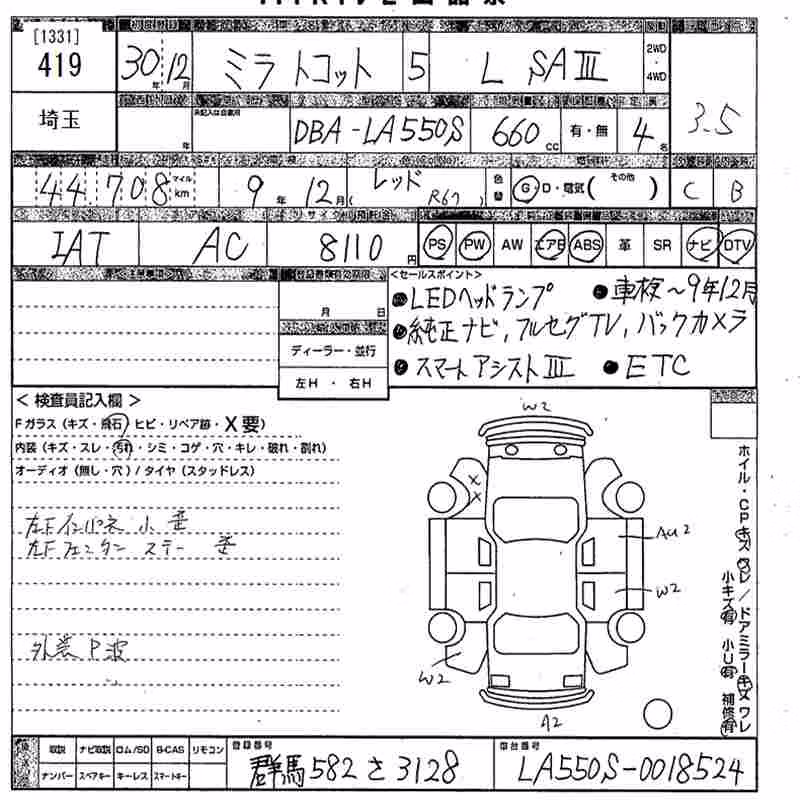 [1331]
419
埼玉
30 年 12 月 ミラ トコット 5 L SAⅢ 2WD・4WD
3.5
年 DBA-LA550S 660 CC 有・無 4 名
44,708 マイル km 9 年 12 月 レッド ( R67 ) 色替 G D・電気 ( その他 ) C B
IAT AC 8110 円 PS PW AW エアB ABS 革 SR ナビ DTV
<セールスポイント>
●LEDヘッドランプ ●車検~9年12月
●純正ナビ, フルセグTV, バックカメラ
●スマートアシストⅢ ●ETC
月 日
ディーラー・並行
左H ・ 右H
< 検査員記入欄 >
Fガラス (キズ・飛石 ヒビ・リペア跡・X要)
内装 (キズ・スレ・汚れ・シミ・コゲ・穴・キレ・破れ・割れ)
オーディオ (無し・穴) / タイヤ (スタッドレス)
左Fインパネ 小 歪
左Fフェンダー ステー 歪
外装 P波
W2
X
X
AU2
W2
W2
A2
ホイル・CP キズ ワレ / ドアミラー キズ ワレ
小キズ 有 小U 有 補修 有
取説 ナビ取説 ロム/SD B-CAS リモコン
ナンバー スペアキー キーレス スマートキー
登録番号
群馬 582 さ 3128
車台番号
LA550S-0018524